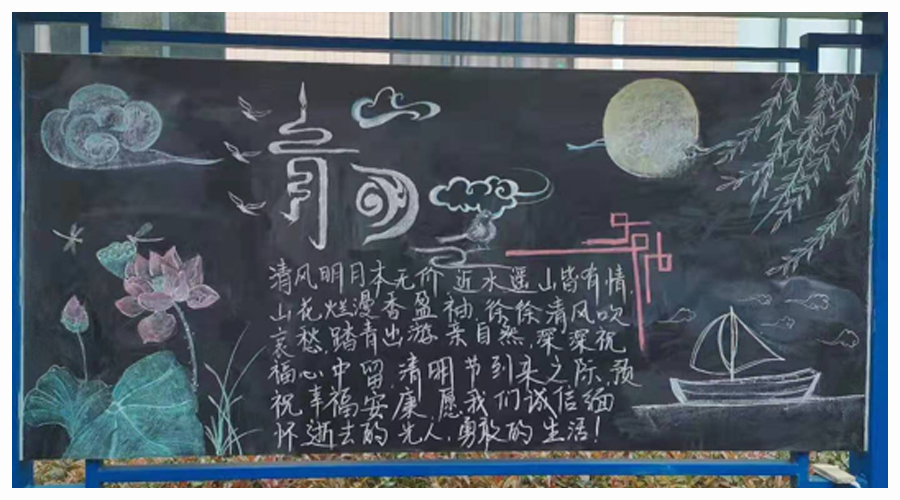 清明
清风明月本无价,近水遥山皆有情,
山花烂漫香盈袖,徐徐清风吹
哀愁,踏青出游亲自然,深深祝
福心中留,清明节到来之际,预
祝幸福安康,愿我们诚信缅
怀逝去的先人,勇敢的生活!